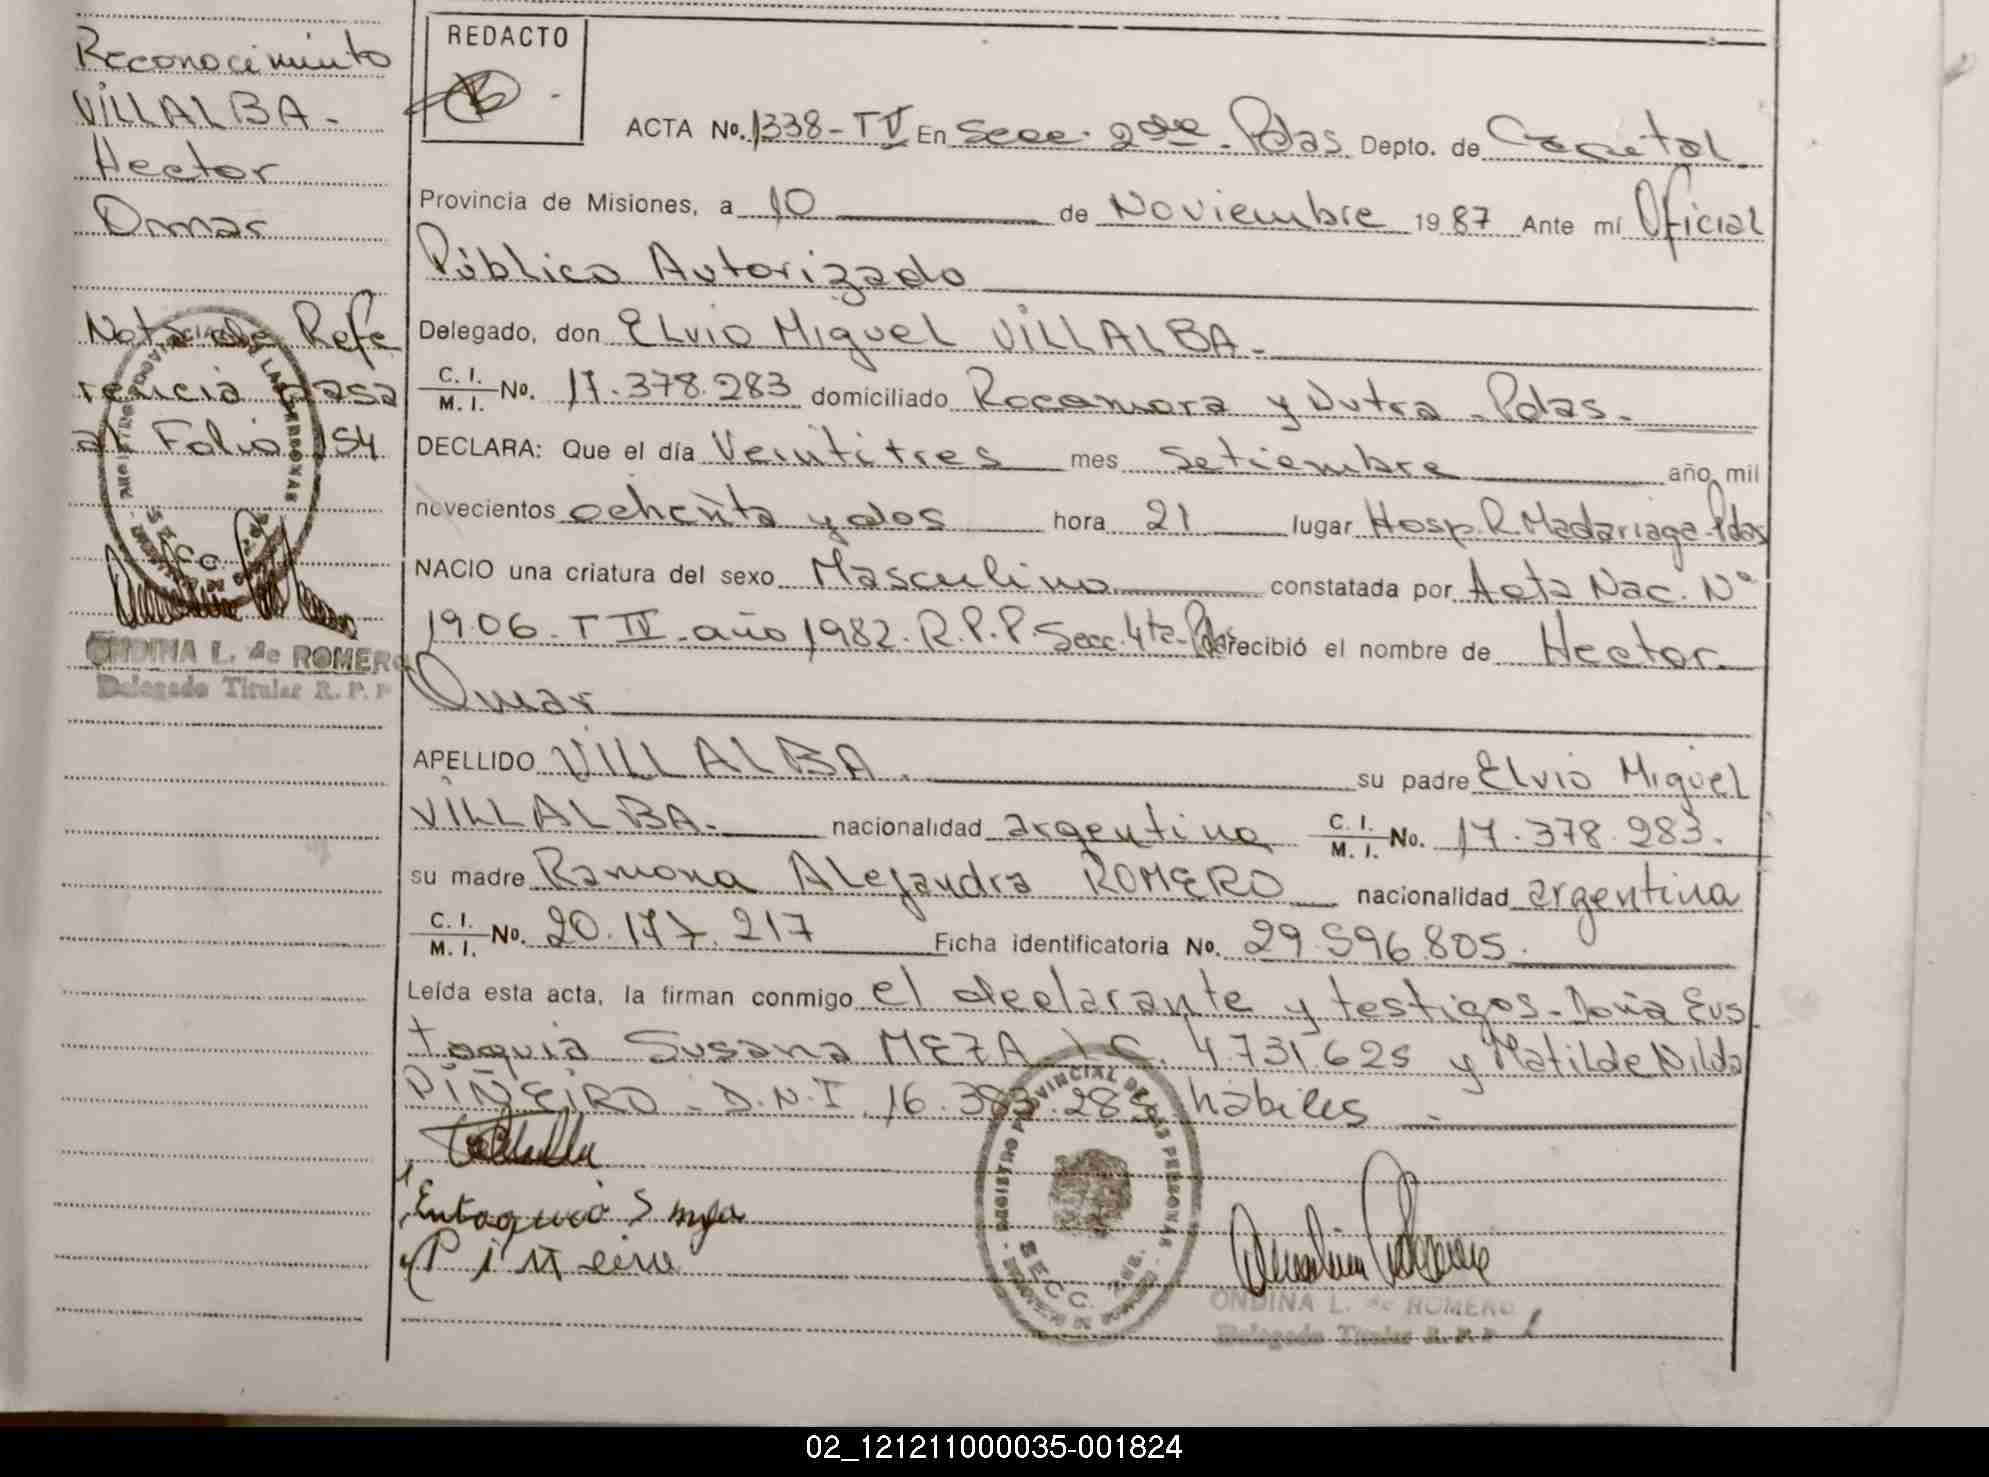 Reconocimiento
VILLALBA-
Hector
Omar
Nota de Refe
rencia pasa
al Folio 154
ONDINA L. de ROMERO
Delegado Titular R. P. P
REDACTO
ACTA No. 1338-TV En Secc. 2da - Pdas Depto. de Capital
Provincia de Misiones, a 10 de Noviembre 1987 Ante mí Oficial
Público Autorizado
Delegado, don Elvio Miguel VILLALBA-
C. I. / M. I. No. 17.378.283 domiciliado Rocamora y Dutra - Pdas-
DECLARA: Que el día Veintitres mes setiembre año mil
novecientos ochenta y dos hora 21 lugar Hosp. R. Madariaga-Pdas
NACIO una criatura del sexo Masculino constatada por Acta Nac. Nº
1906-T IV-año 1982. R.P.P. Secc. 4ta-Pdas recibió el nombre de Hector
Omar
APELLIDO VILLALBA. su padre Elvio Miguel
VILLALBA- nacionalidad argentina C. I. / M. I. No. 17.378.283.
su madre Ramona Alejandra ROMERO nacionalidad argentina
C. I. / M. I. No. 20.177.217 Ficha identificatoria No. 29.596.805.
Leída esta acta, la firman conmigo el declarante y testigos-Doña Eus
taquia Susana MEZA L.C. 4.731.625 y Matilde Nilda
PIÑEIRO - D.N.I. 16.383.285 hábiles -
REGISTRO PROVINCIAL DE LAS PERSONAS
SECC. 2da.
Piñeiro
ONDINA L. de ROMERO
Delegado Titular R. P. P
02_121211000035-001824